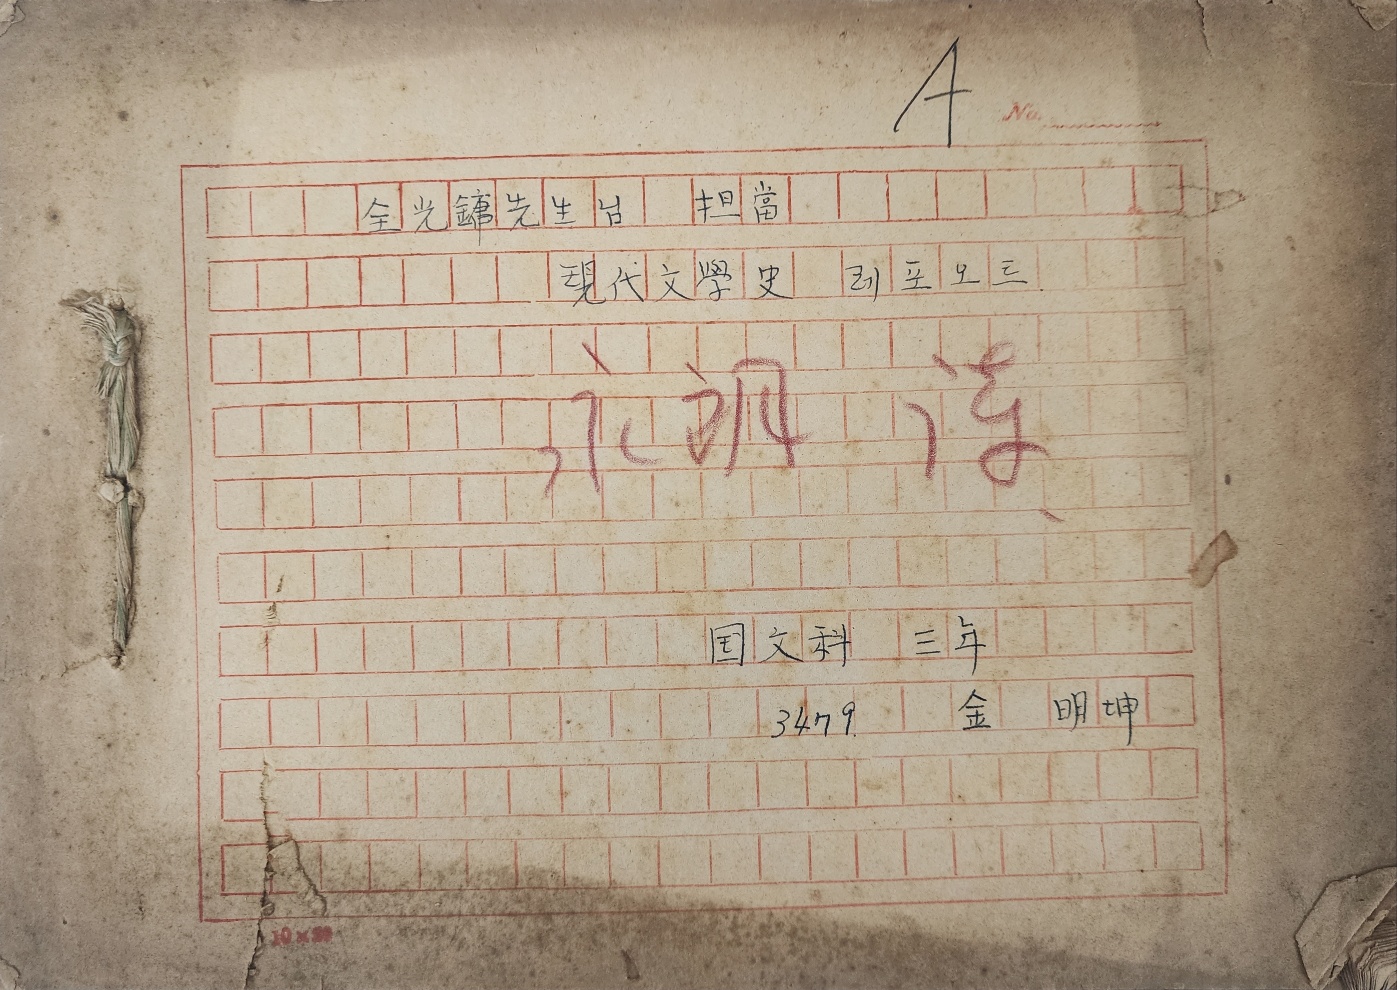 A
No.
全光鏞先生님 担當
現代文學史 레포오트
国文科 三年
3479 金 明坤
10×20